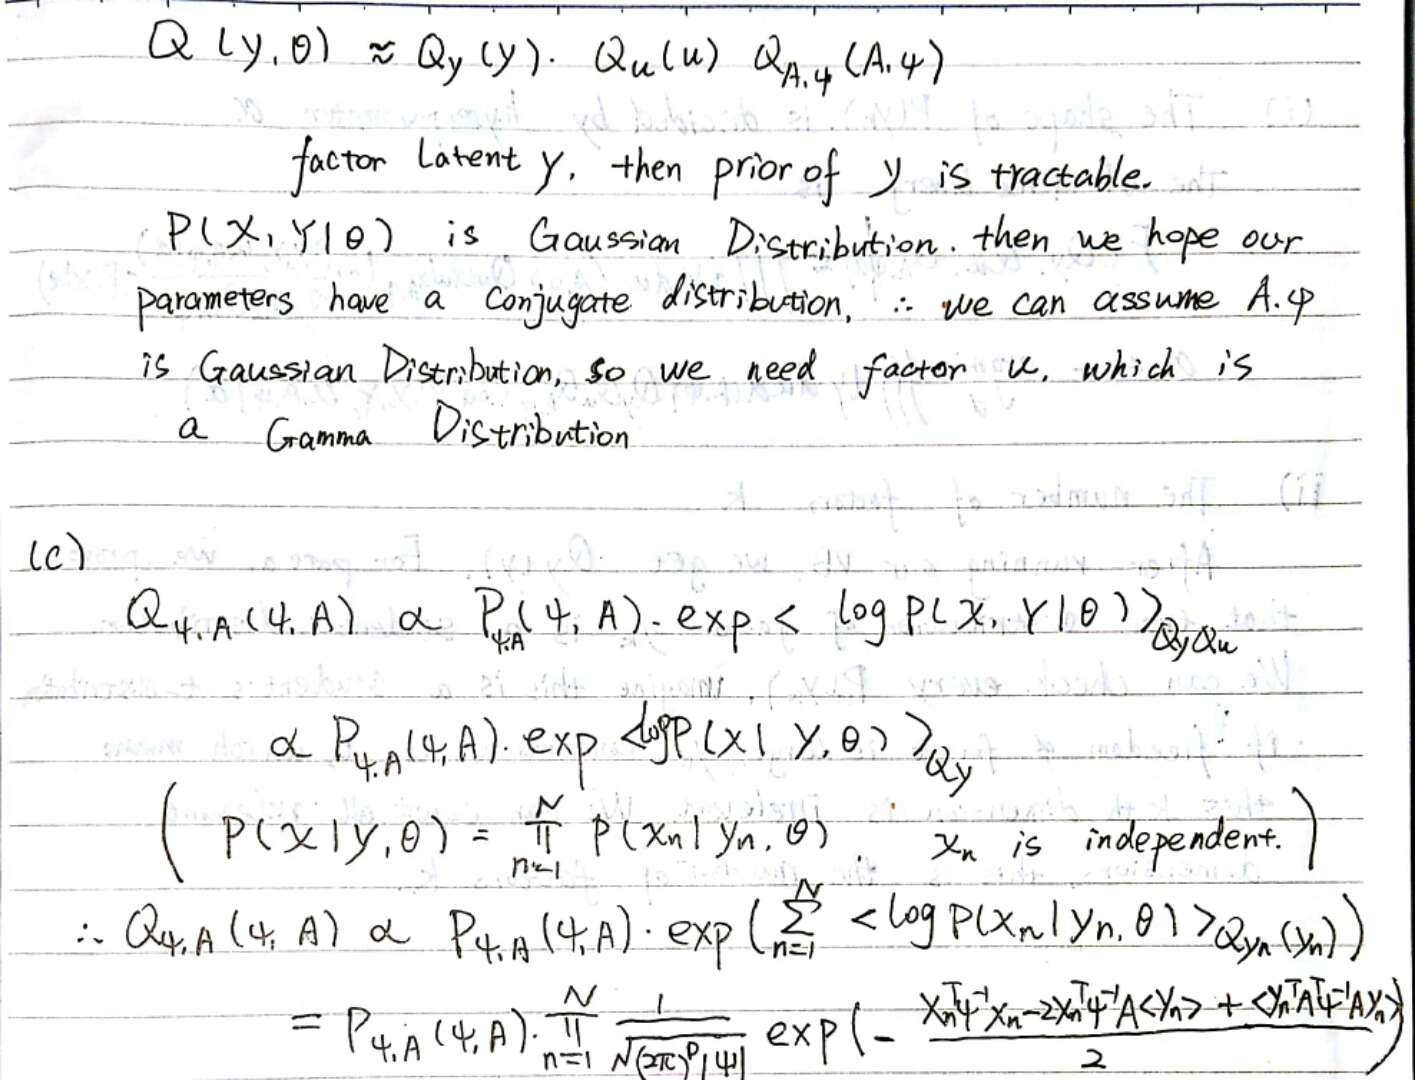 Q (y, θ) ≈ Qy (y). Qu(u) Q_{A,ψ} (A.ψ)
factor latent y, then prior of y is tractable.
P(X, Y|θ) is Gaussian Distribution. then we hope our
parameters have a conjugate distribution, ∴ we can assume A.ψ
is Gaussian Distribution, so we need factor u, which is
a Gamma Distribution
(c)
Q_{ψ.A}(ψ.A) ∝ P_{ψ.A}(ψ, A). exp < log P(X, Y|θ) >_{QyQu}
∝ P_{ψ.A}(ψ, A). exp <log P(X| Y, θ) >_{Qy}
( P(X|Y,θ) = ∏_{n=1}^{N} P(xn| yn, θ) , xn is independent. )
∴ Q_{ψ.A}(ψ, A) ∝ P_{ψ.A}(ψ,A). exp (∑_{n=1}^{N} <log P(xn|yn, θ) >_{Qyn(yn)})
= P_{ψ.A}(ψ, A). ∏_{n=1}^{N} 1/√((2π)^P|ψ|) exp(- (xn^Tψ^{-1}xn - 2xn^Tψ^{-1}A<yn> + <yn^TA^Tψ^{-1}Ayn>)/2)